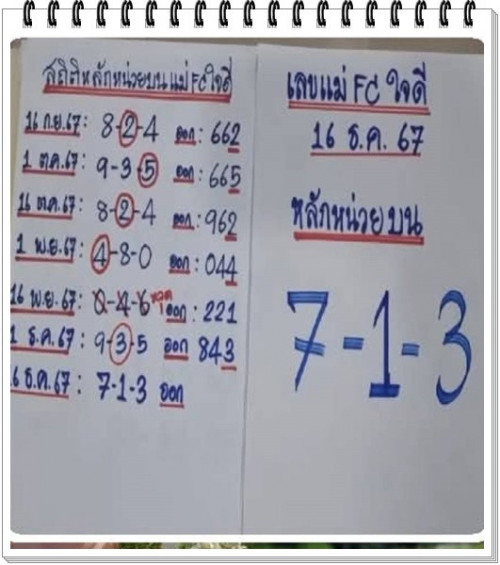 สถิติหลักหน่วยบนแม่ FC ใจดี
16 ก.ย.67: 8-2-4 ออก: 662
1 ต.ค.67: 9-3-5 ออก: 665
16 ต.ค.67: 8-2-4 ออก: 962
1 พ.ย.67: 4-8-0 ออก: 044
16 พ.ย.67: 0-4-6 หลุด ออก: 221
1 ธ.ค.67: 9-3-5 ออก 843
16 ธ.ค.67: 7-1-3 ออก
เลขแม่ FC ใจดี
16 ธ.ค. 67
หลักหน่วยบน
7-1-3